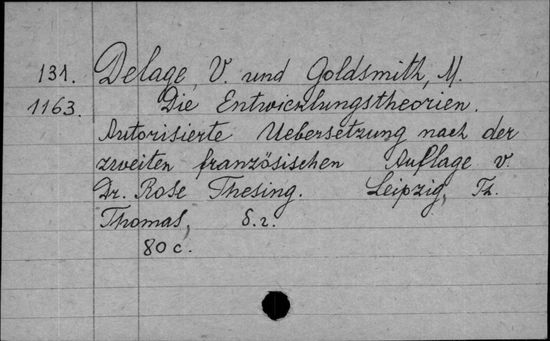 131. Delage, V. und Goldsmith, M.
1163. Die Entwicklungstheorien.
Autorisierte Uebersetzung nach der
zweiten französischen Auflage v.
Dr. Rose Thesing. Leipzig, Th.
Thomas, S.a.
80 c.